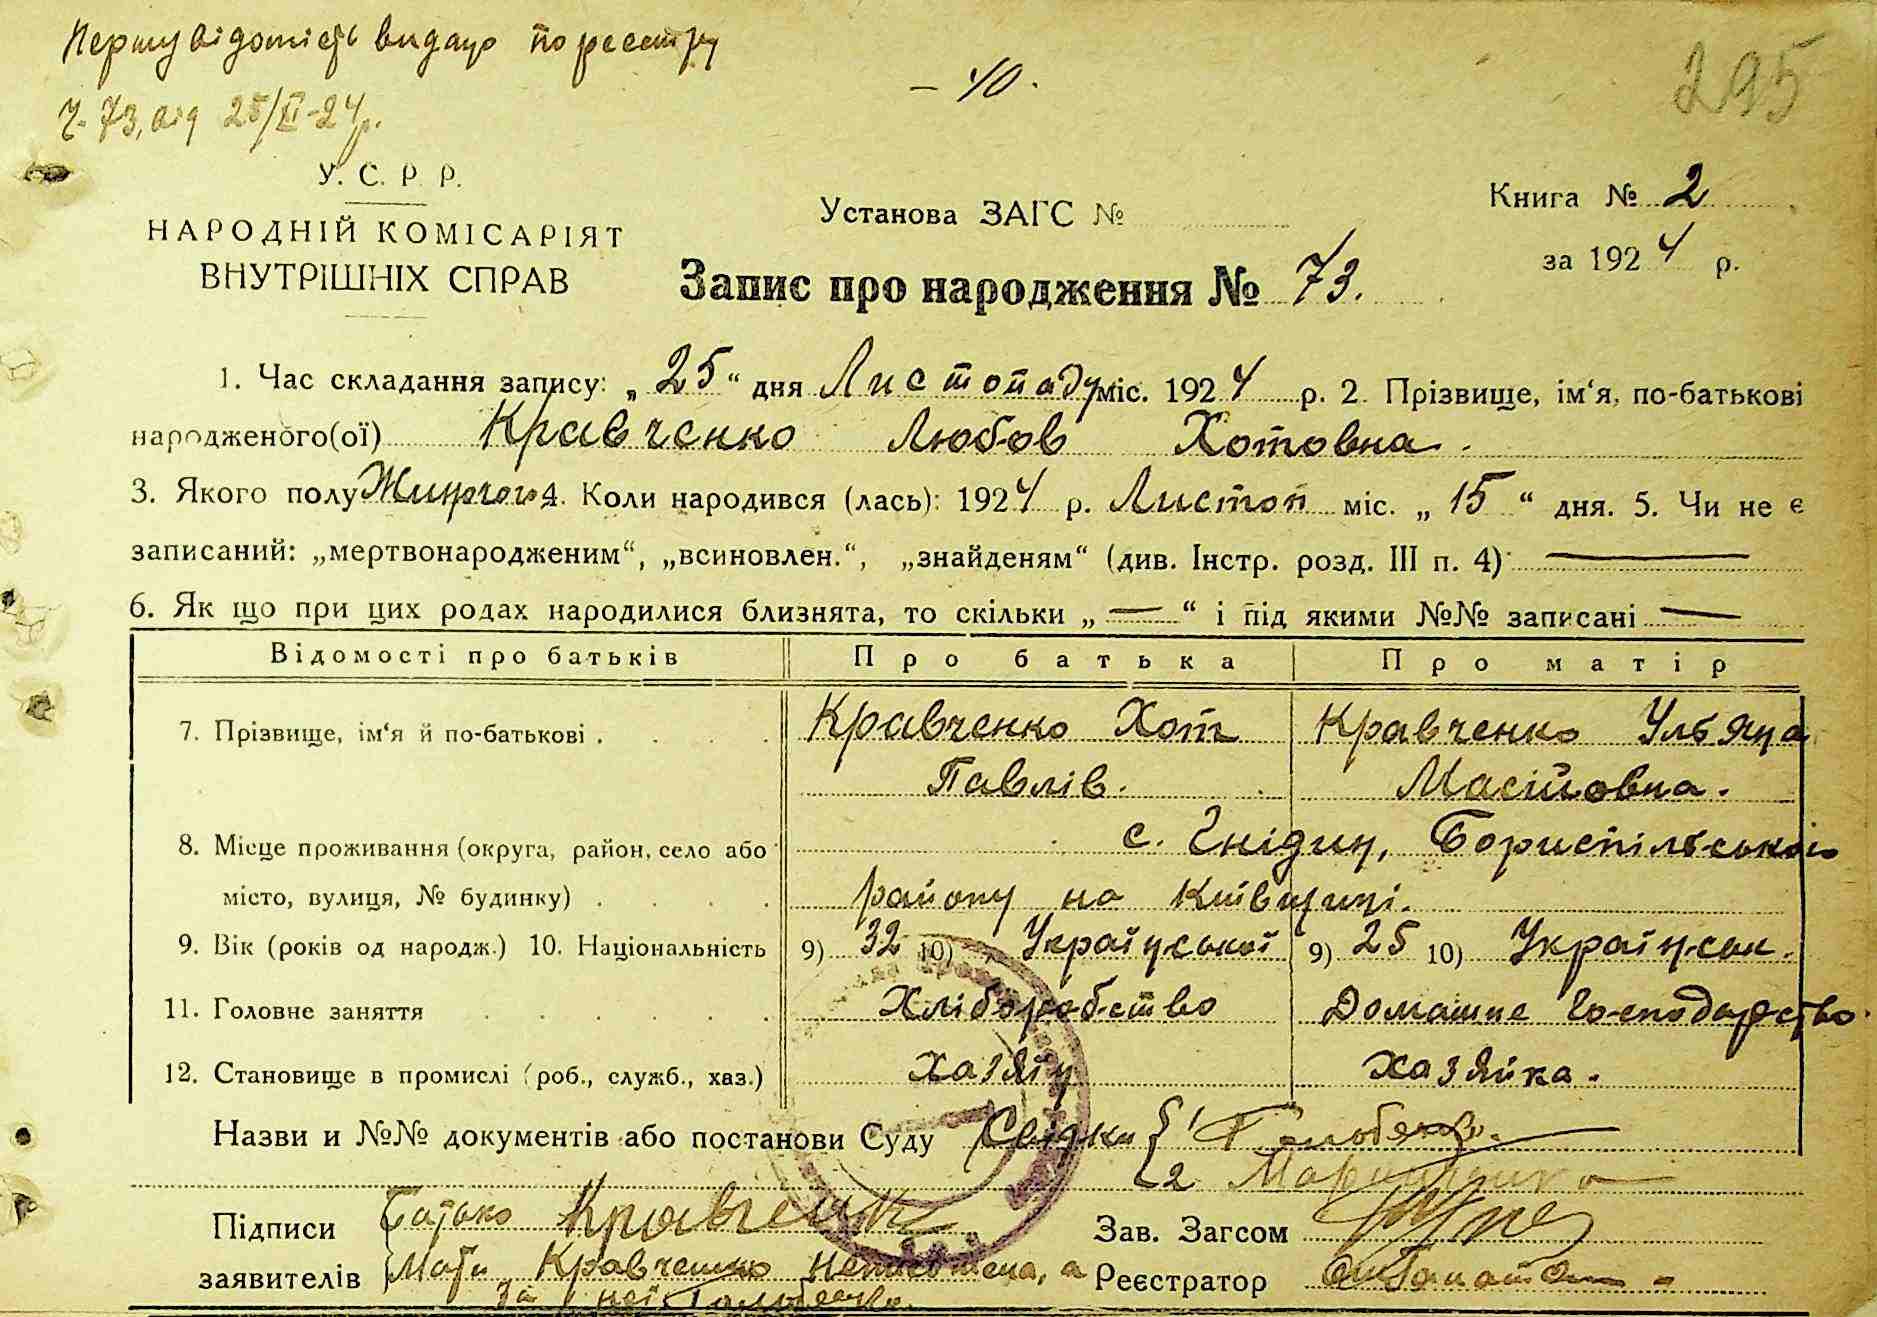 Першу відомість видано по реєстру
Ч. 73, від 25/XI-24 р.
- 40.
295
У. С. Р. Р.
НАРОДНІЙ КОМІСАРІЯТ
ВНУТРІШНІХ СПРАВ
Установа ЗАГС №
Книга № 2
за 1924 р.
Запис про народження № 73.
1. Час складання запису: „25“ дня Листопаду міс. 1924 р. 2. Прізвище, ім‘я, по-батькові
народженого(ої) Кравченко Любов Хотовна.
3. Якого полу 4. Коли народився (лась): 1924 р. Листоп міс. „15“ дня. 5. Чи не є
записаний: „мертвонародженим“, „всиновлен.“, „знайденям“ (див. Інстр. розд. III п. 4) —
6. Як що при цих родах народилися близнята, то скільки „—“ і під якими №№ записані —
Відомості про батьків Про батька Про матір
7. Прізвище, ім‘я й по-батькові . Кравченко Хот Кравченко Ульяна
Павлів. Масійовна.
8. Місце проживання (округа, район, село або с. Гнідин, Бориспільського
місто, вулиця, № будинку) . району на Київщині.
9. Вік (років од народж.) 10. Національність 9) 32 10) Української 9) 25 10) Українськ.
11. Головне заняття Хліборобство Домашне Господарство.
12. Становище в промислі (роб., служб., хаз.) Хазяїн Хазяйка.
Назви и №№ документів або постанови Суду Свідки { 1
2
Підписи Батько Кравченко Зав. Загсом
заявителів Мати Кравченко Неписьмена, а Реєстратор
за неї